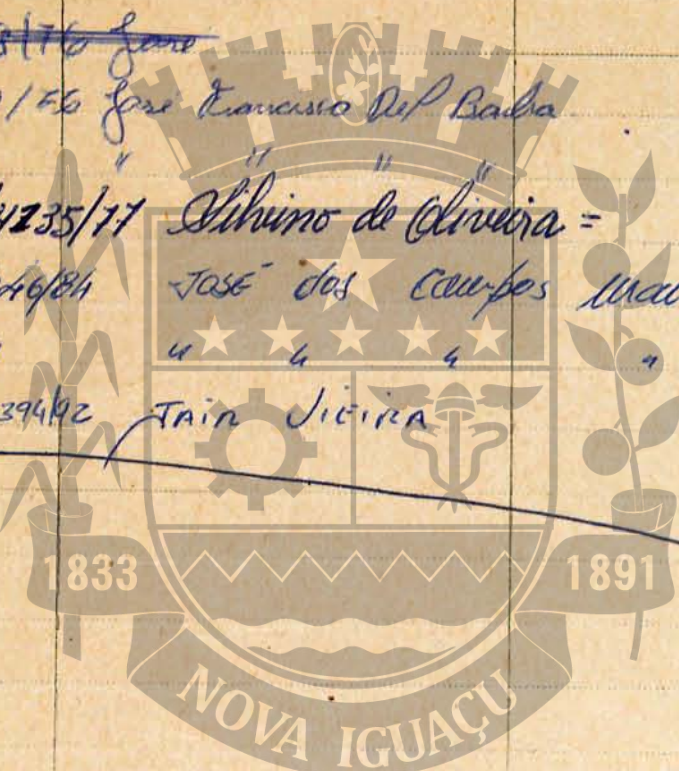 /76 José
/56 José Francisco Del
" " " "
4235/77 Silvino de Oliveira =
46/84 José dos Campos
" " " "
394/92 JAIR VIEIRA
1833 1891
NOVA IGUAÇU